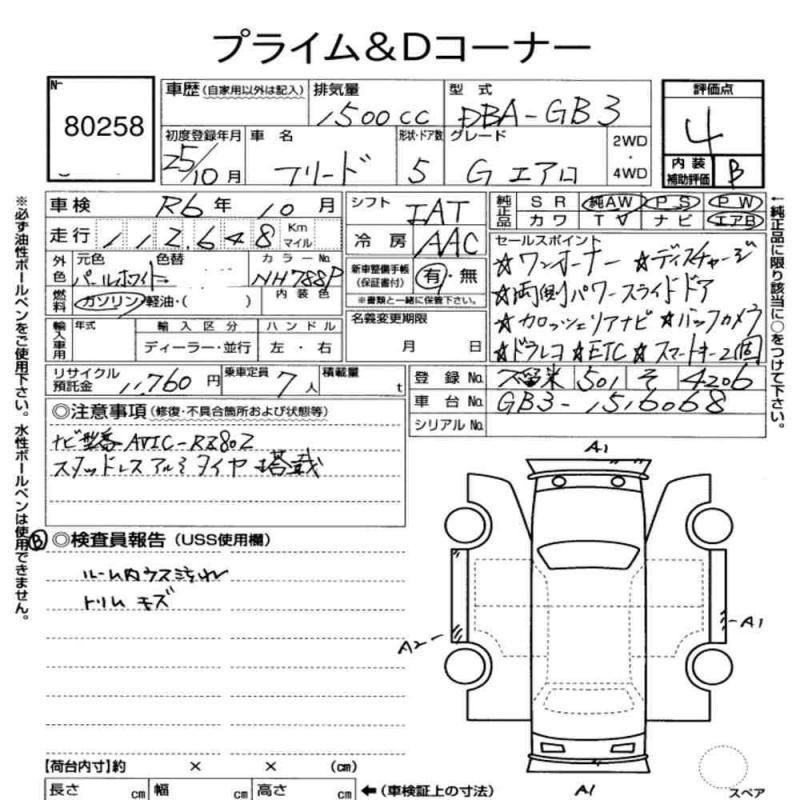 プライム&Dコーナー
№
80258
車歴 (自家用以外は記入)
排気量
1500cc
型式
DBA-GB3
評価点
4
初度登録年月
25/10月
車名
フリード
形状・ドア数
5
グレード
G エアロ
2WD
・
4WD
内装
補助評価
B
車検 R6年 10月
シフト
IAT
純正品
SR 純AW PS PW
カワ TV ナビ エアB
走行 112,648 Km マイル
冷房 AAC
外色
元色
パールホワイト
色替
カラーNo.
NH788P
燃料
ガソリン・軽油・( )
内装色
新車整備手帳
(保証書付)
有・無
※書類と一緒に保管下さい。
セールスポイント
☆ワンオーナー ☆ディスチャージ
☆両側パワースライドドア
☆カロッツェリアナビ ☆バックカメラ
☆ドラレコ ☆ETC ☆スマートキー2個
輸入車用
年式
輸入区分
ハンドル
ディーラー・並行
左・右
名義変更期限
月 日
リサイクル
預託金
11,760円
乗車定員
7人
積載量
t
登録No. 久留米 501 そ 4206
車台No. GB3-1516068
シリアルNo.
◎注意事項 (修復・不具合箇所および状態等)
ナビ型番 AVIC-RZ802
スタッドレスアルミタイヤ搭載
B
◎検査員報告 (USS使用欄)
ルーム内ウス汚れ
トリム キズ
A1
A2
A1
A1
スペア
【荷台内寸】約 × × (cm)
長さ cm 幅 cm 高さ cm ←(車検証上の寸法)
※必ず油性ボールペンをご使用下さい。水性ボールペンは使用できません。
←純正品に限り該当に○をつけて下さい。